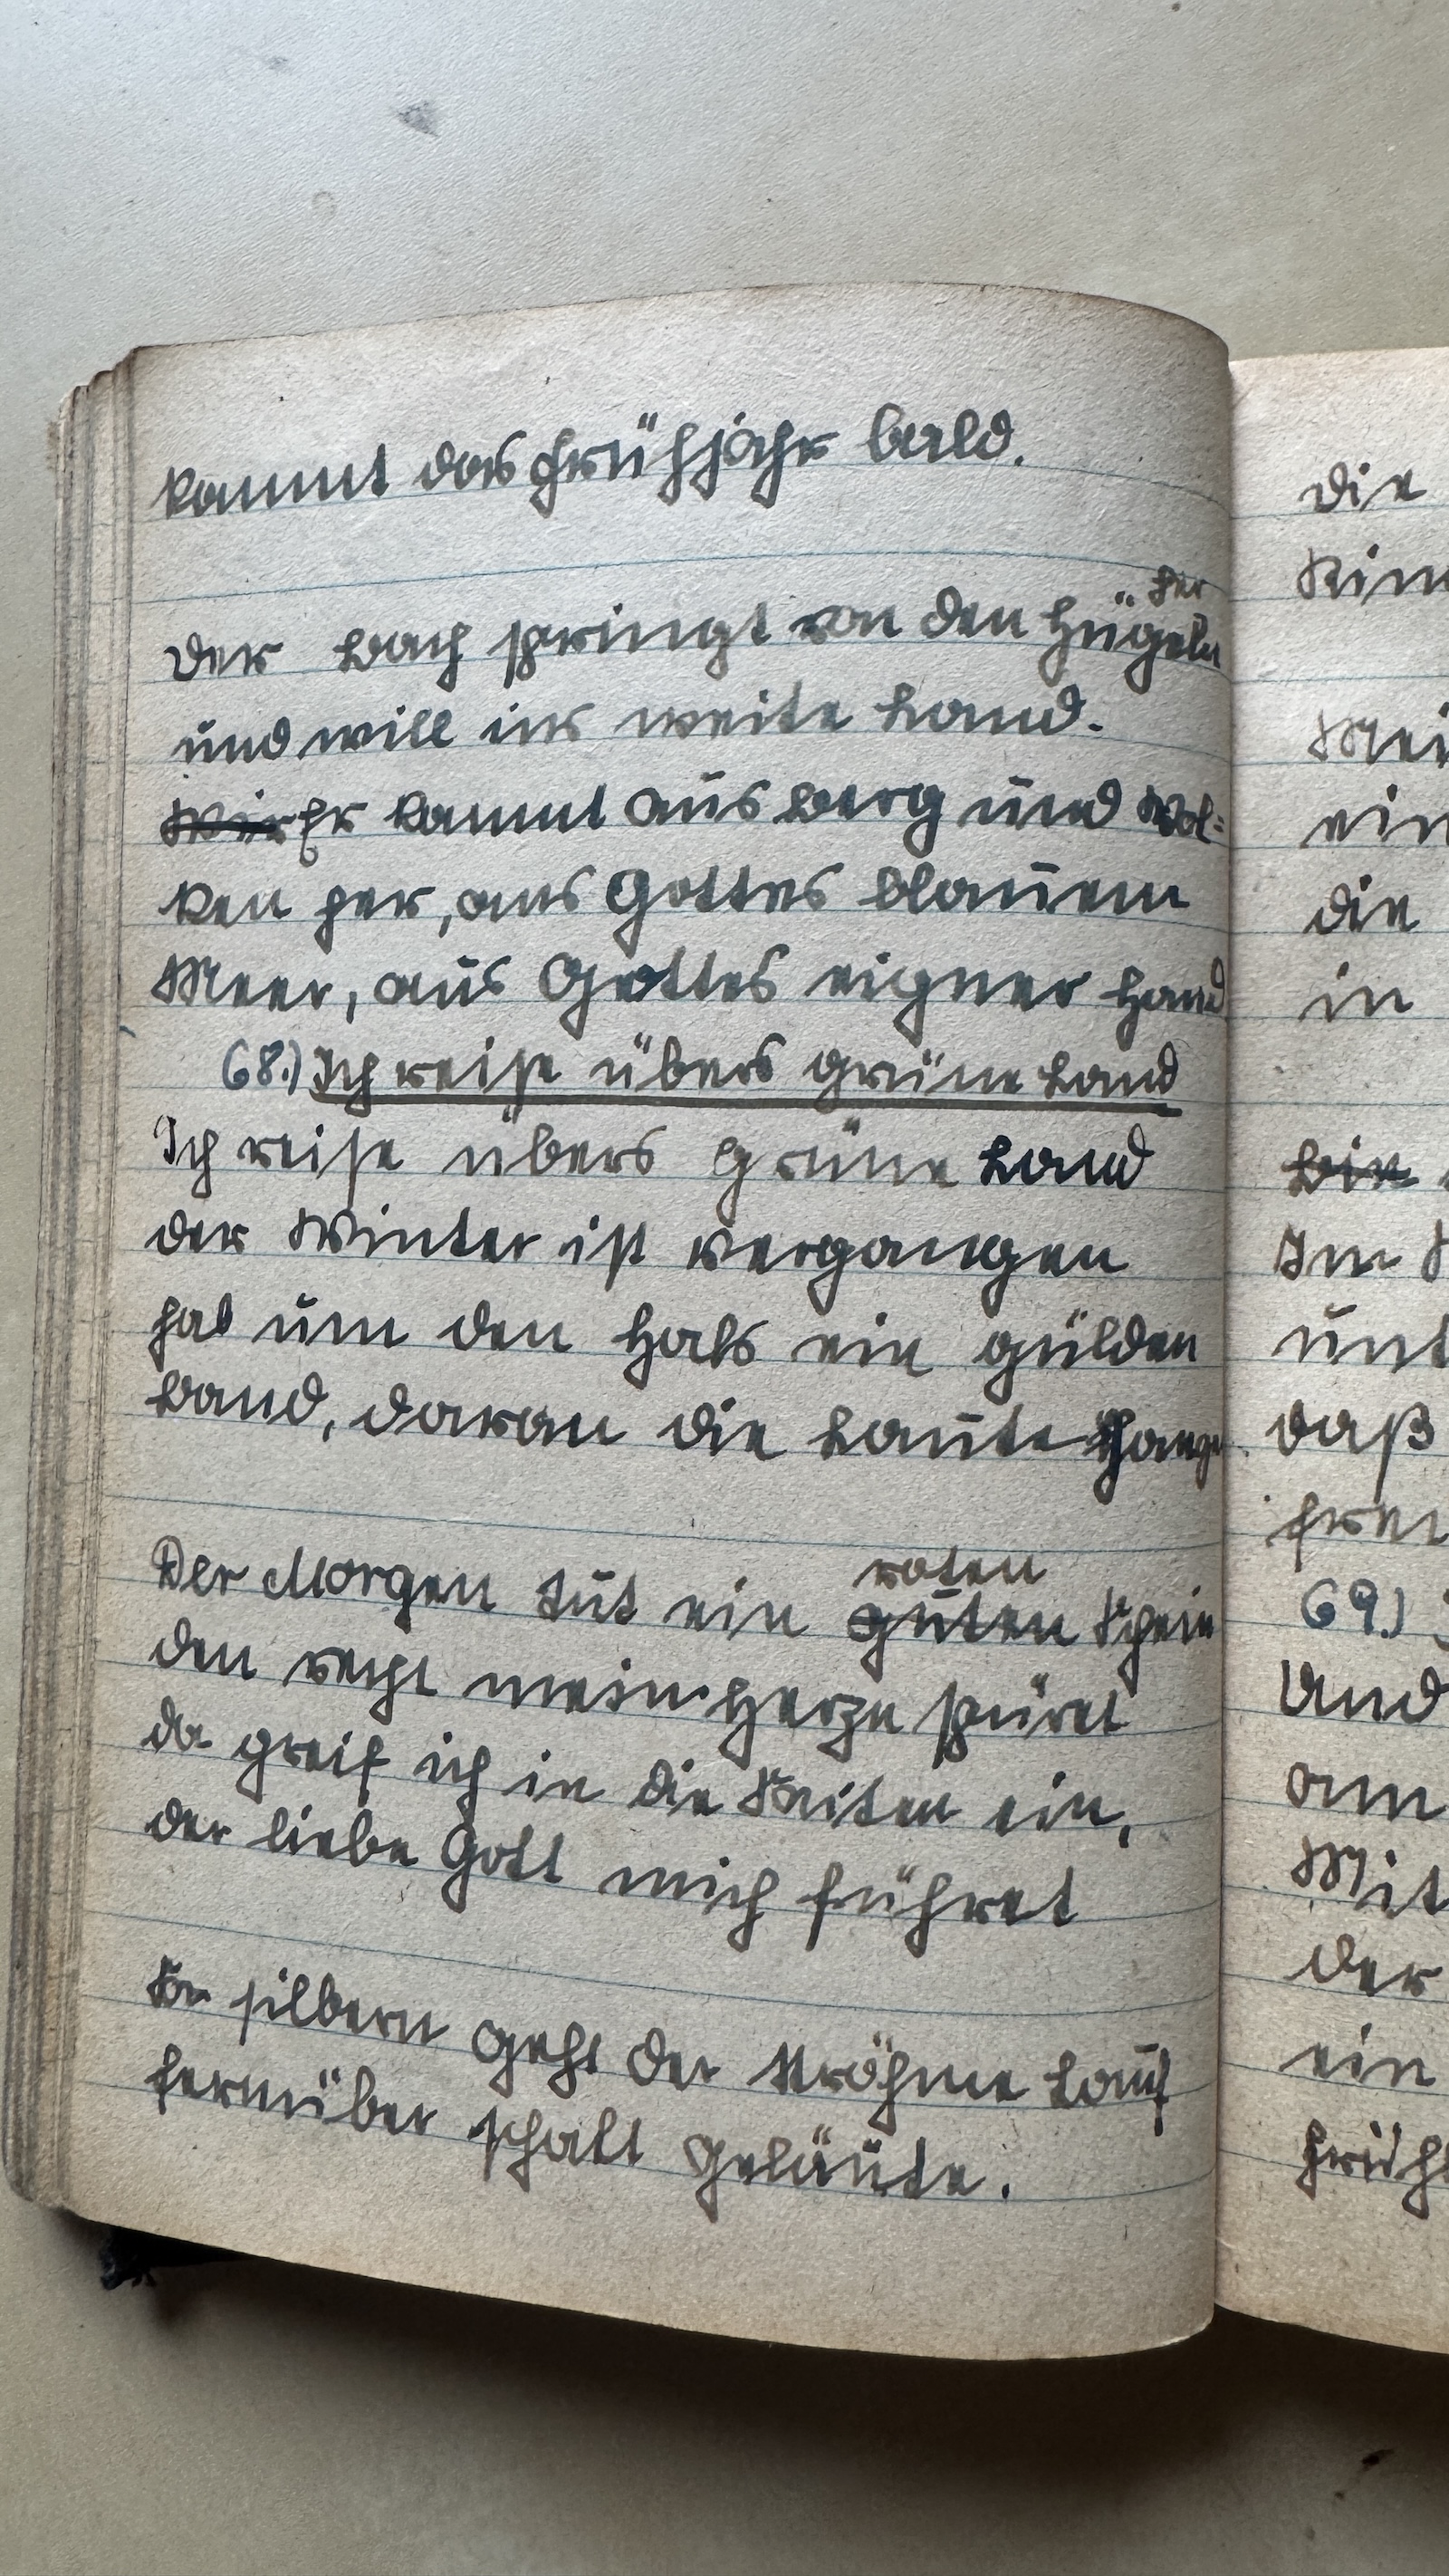 kommt das Frühjahr bald.
her
Der Bach springt von den Hügeln
und will ins weite Land.
Wir Er kommt aus Berg und Wol=
ken her, aus Gottes blauem
Meer, aus Gottes eigner Hand
68.) Ich reise übers grüne Land
Ich reise übers grüne Land
der Winter ist vergangen
hab um den Hals ein gülden
Band, daran die Laute hangen.
roten
Der Morgen tut ein guten Schein
den recht mein Herze spüret
da greif ich in die Saiten ein,
der liebe Gott mich führet
So silbern geht der Ströhme Lauf
fernüber schalt Geläute.
die
Kin
Mei
ein
die
in
Die
Im
unt
daß
frei
69.)
Und
am
Mit
der
ein
Früh